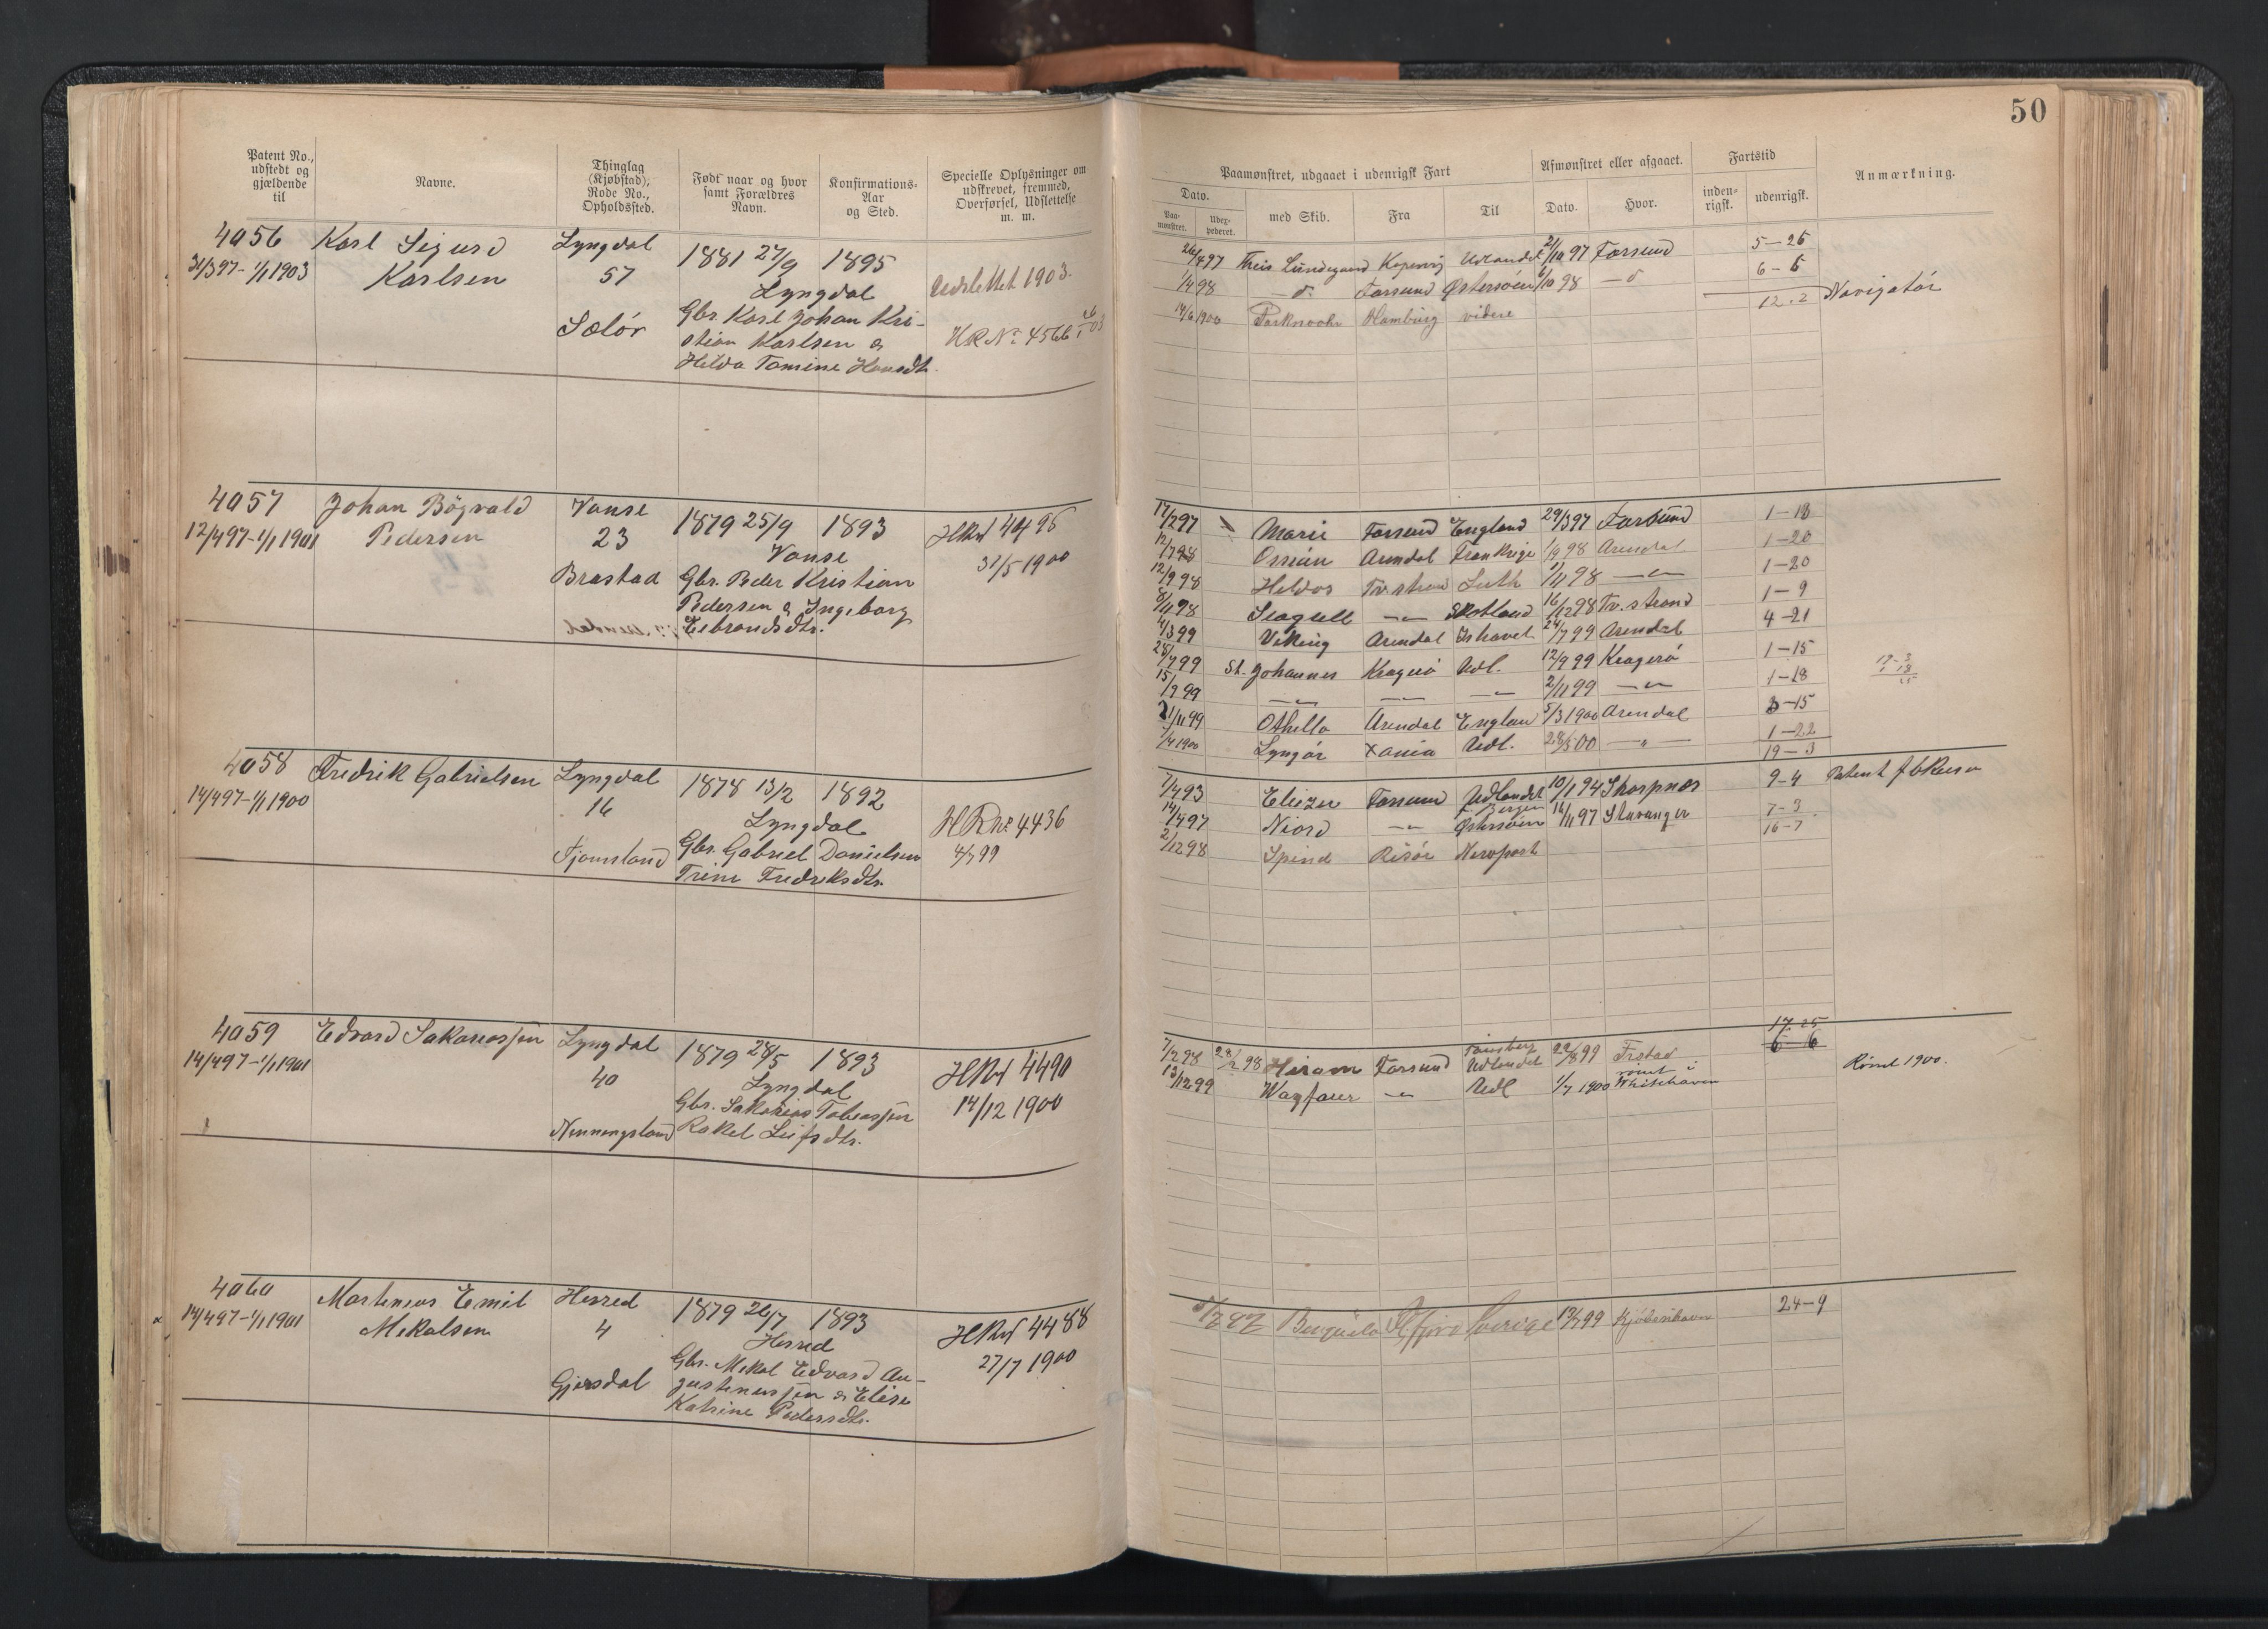 50
Patent No., udstedt og gjældende til
Navne.
Thinglag (Kjøbstad), Rode No., Opholdssted.
Født naar og hvor samt Forældres Navn.
Konfirmations-Aar og Sted.
Specielle Oplysninger om udskrevet, fremmed, Overførsel, Udslettelse m. m.
4056 Karl Sigurd Lyngdal 1881 27/9 1895
31/3 97 - 1/1 1903 Karlsen 57 Lyngdal Udslettet 1903.
Sælør Gbr. Karl Johan Kri-
stian Karlsen & HR No 4566
Hilda Tomine Hansdtr.
4057 Johan Bögvald Vanse 1879 25/9 1893 HRNo 4496
12/4 97 - 1/1 1901 Pedersen 23 Vanse 31/5 1900
Brastad Gbr. Peder Kristian
Pedersen & Ingeborg
Eibrandsdtr.
4058 Fredrik Gabrielsen Lyngdal 1878 13/2 1892
14/4 97 - 1/1 1900 16 Lyngdal HRNo 4436
Fjomsland Gbr. Gabriel Danielsen 4/7 99
Trine Fredriksdtr.
4059 Edvard Sakariassen Lyngdal 1879 28/5 1893 HRNo 4490
14/4 97 - 1/1 1901 40 Lyngdal 14/12 1900
Gbr. Sakarias Tobiassen
Nenningsland Rakel Leifsdtr.
4060 Martinius Emil Herred 1879 26/7 1893 HRNo 4488
14/4 97 - 1/1 1901 Mikalsen 4 Herred 27/7 1900
Gbr. Mikal Edvard Au-
Gjersdal gustinussen & Elise
Katrine Pedersdtr.
Paamønstret, udgaaet i udenrigsk Fart
Afmønstret eller afgaaet.
Fartstid
Anmærkning.
Dato.
Paa-mønstret.
Uder-pederet.
med Skib.
Fra
Til
Dato.
Hvor.
inden-rigsk.
udenrigsk.
26/4 97 Theis Lundegaard Kopervig Udlandet 2/10 97 Farsund 5-25
1/4 98 - d. Farsund Østersöen 6/10 98 - d 6-5
12-2 Navigatör
14/6 1900 Hamburg videre
17/2 97 Marie Farsund England 29/3 97 Farsund 1-18
12/7 98 Ossian Arendal Frankrige 1/9 98 Arendal 1-20
12/9 98 Heldos Tv.strand Leith 1/11 98 - " - 1-20
8/11 98 Seagull - " - Skotland 16/12 98 Tv.strand 1-9
4/3 99 Viking Arendal Ishavet 24/7 99 Arendal 4-21
28/7 99 St. Johannes Kragerö Udl. 12/9 99 Kragerö 1-15
15/9 99 - " - - " - - " - 2/11 99 - " - 1-18
21/11 99 Othello Arendal Englan 5/3 1900 Arendal 3-15
1/4 1900 Lyngör Xania Udl. 28/5 00 - " - 1-22
19-3
7/4 93 Eliezer Farsund Udlandet 10/1 94 Skarpnes 9-4 Patent
14/4 97 Niord - " - Bergen Østersöen 14/11 97 Stavanger 7-3
16-7
2/12 98 Spind Risör Newport
17-25
7/2 98 28/2 98 Hiram Farsund Tønsberg Udlandet 22/8 99 Frstad 6-6
13/12 99 Wayfarer - " - Udl 1/7 1900 römt i Whitehaven Römt 1900.
5/7 97 Sverige 13/7 99 Kjöbenhavn 24-9